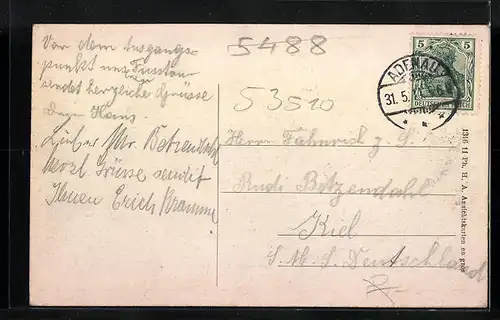 5488
53510
Vor dem Ausgangs-
punkt uns. Fusstour
sendet herzliche Grüsse
Dein Hans.
Lieber Mr. Betzendahl
Grüsse sendet
Ihnen Erich Kramme
5 5
DEUTSCHES REICH
ADENAU
31.5.
Herrn Fähnrich z. S.
Rudi Betzendahl
Kiel
S. M. S. Deutschland
1316 11 Ph. H. A. Ansichtskarten en gros